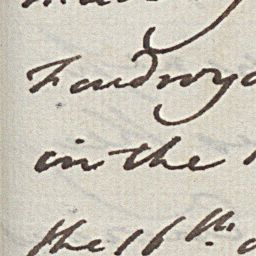 Foudroya
in the
the 16th